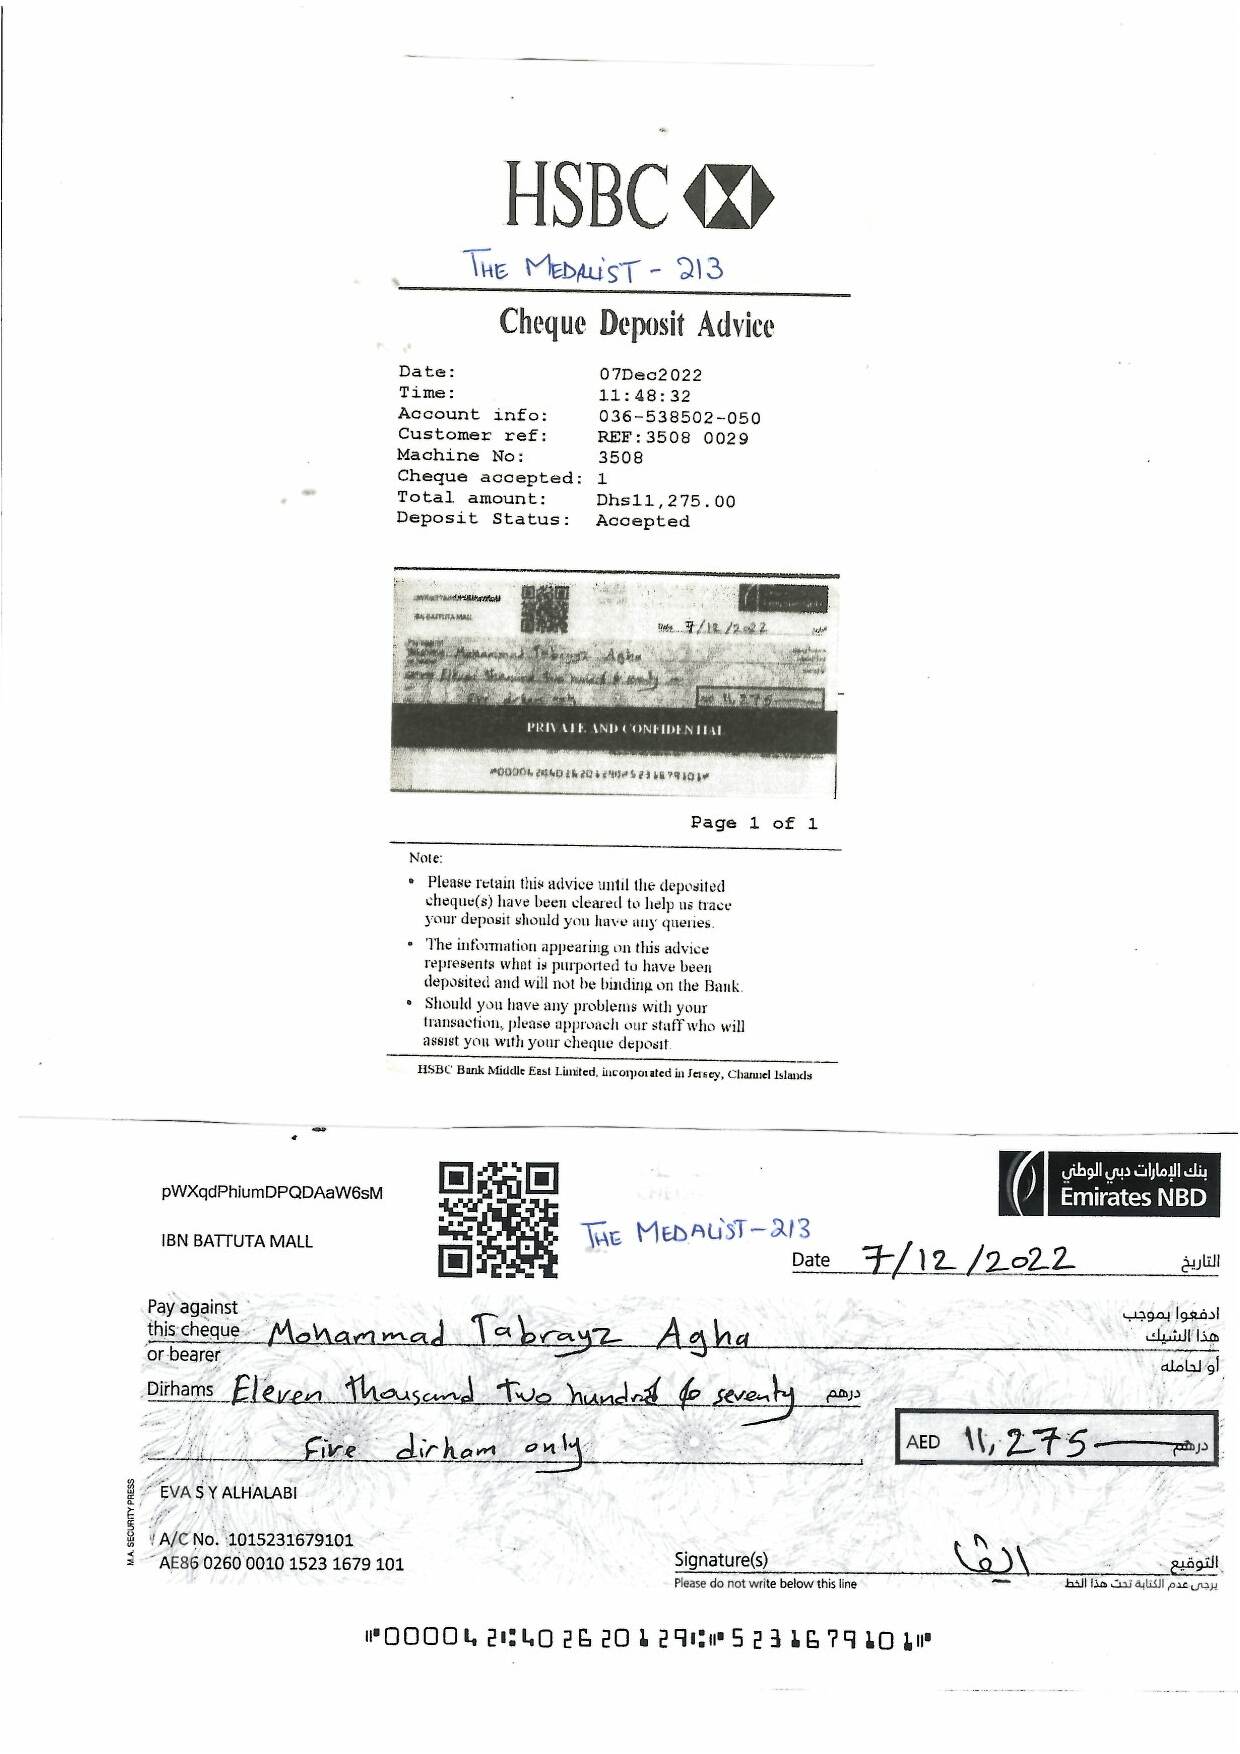 HSBC
THE MEDALIST - 213
Cheque Deposit Advice
Date: 07Dec2022
Time: 11:48:32
Account info: 036-538502-050
Customer ref: REF:3508 0029
Machine No: 3508
Cheque accepted: 1
Total amount: Dhs11,275.00
Deposit Status: Accepted
IBN BATTUTA MALL
Date 7/12/2022
Mohammad Tabrayz Agha
Eleven thousand two hundred & seventy
Five dirham only
11,275
PRIVATE AND CONFIDENTIAL
Page 1 of 1
Note:
• Please retain this advice until the deposited
cheque(s) have been cleared to help us trace
your deposit should you have any queries.
• The information appearing on this advice
represents what is purported to have been
deposited and will not be binding on the Bank.
• Should you have any problems with your
transaction, please approach our staff who will
assist you with your cheque deposit.
HSBC Bank Middle East Limited, incorporated in Jersey, Channel Islands
بنك الإمارات دبي الوطني
Emirates NBD
pWXqdPhiumDPQDAaW6sM
IBN BATTUTA MALL
THE MEDALIST - 213
Date 7/12/2022 التاريخ
Pay against ادفعوا بموجب
this cheque Mohammad Tabrayz Agha هذا الشيك
or bearer أو لحامله
Dirhams Eleven thousand two hundred & seventy درهم
Five dirham only
AED 11,275 درهم
M.A. SECURITY PRESS
EVA S Y ALHALABI
A/C No. 1015231679101
AE86 0260 0010 1523 1679 101
Signature(s) التوقيع
Please do not write below this line يرجى عدم الكتابة تحت هذا الخط
⑈000042⑆402620129⑆⑈5231679101⑈